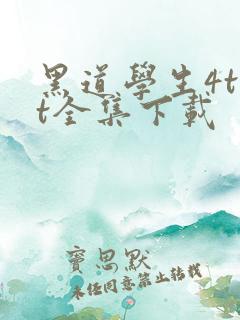 黑道學生4t
t全集下載
寶思默
未任同意禁止转载